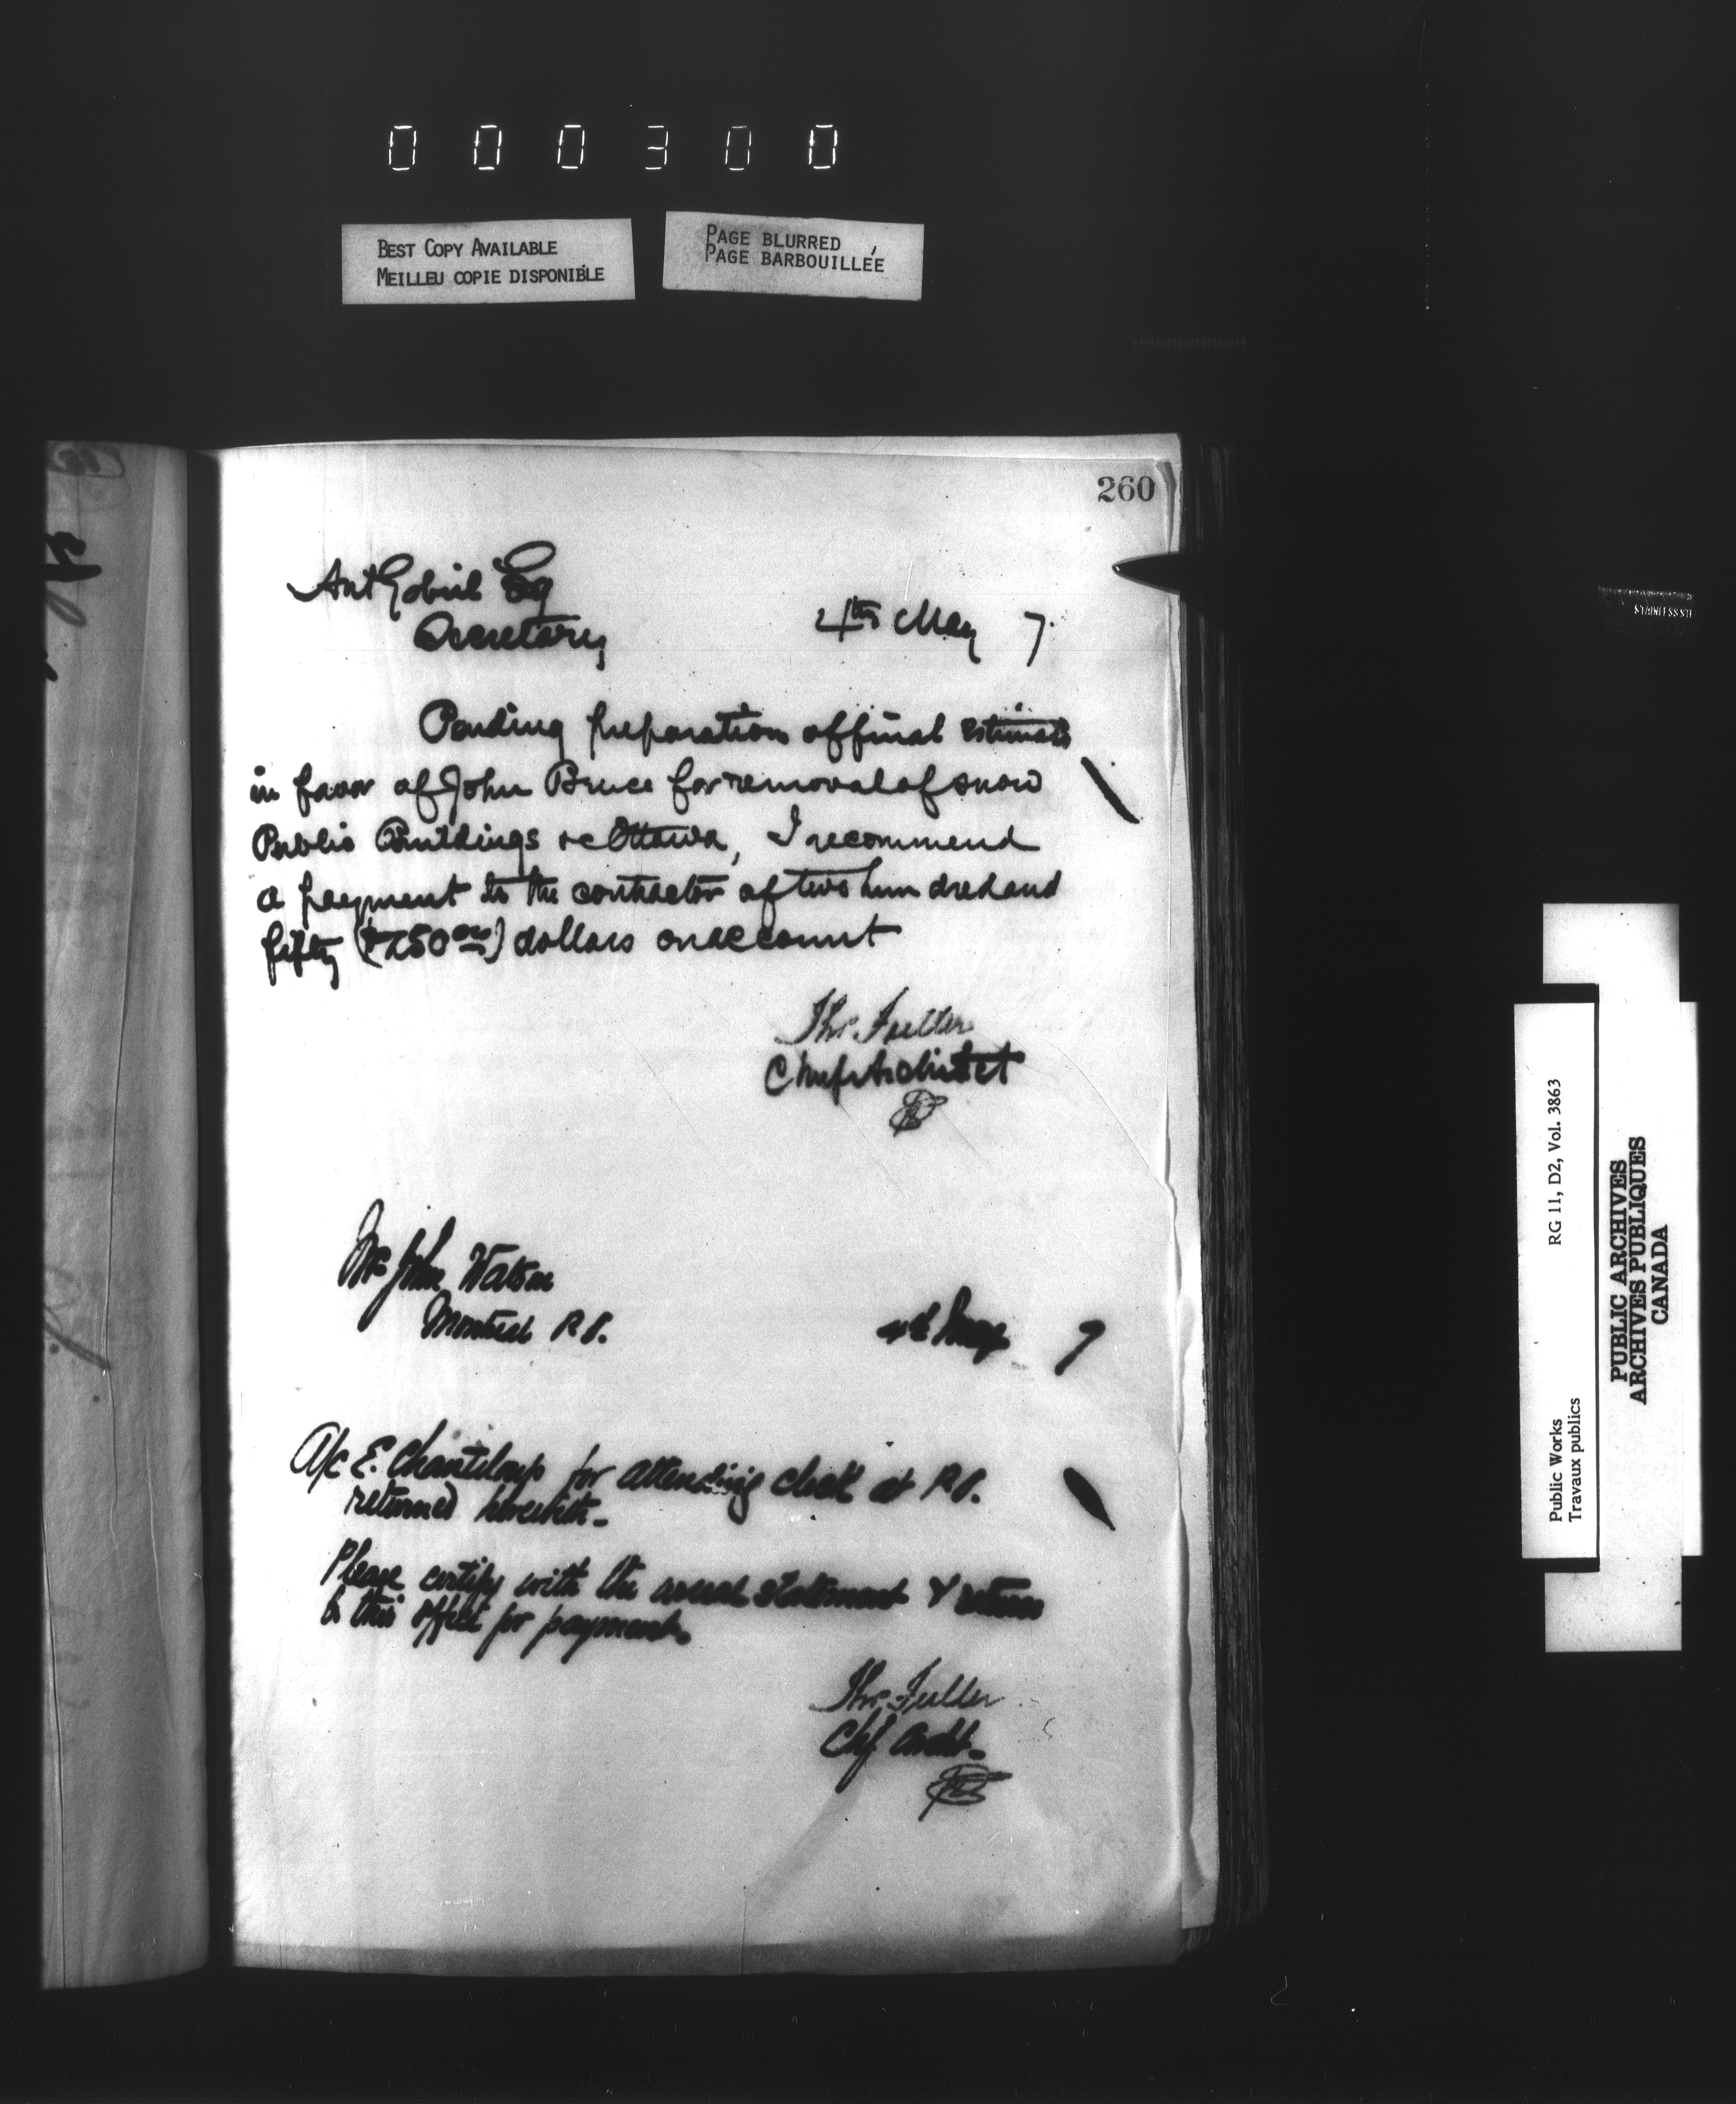 000300
BEST COPY AVAILABLE
MEILLEU COPIE DISPONIBLE
PAGE BLURRED
PAGE BARBOUILLÉE
260
Ant Gobeil Esq
Secretary
4th May 7.
Pending preparation of final Estimate
in favor of John Bruce for removal of snow
Public Buildings &c Ottawa, I recommend
a payment to the contractor of two hundred and
fifty ($250 00) dollars on account
Thos. Fuller
Chief Architect
Mr John Watson
Montreal P.O.
4th May 7
A/c E. Chanteloup for attending clock at P.O.
returned herewith.
Please certify with the usual statement & return
to this office for payment.
Thos. Fuller
Chf Archt.
RG 11, D2, Vol. 3863
Public Works
Travaux publics
PUBLIC ARCHIVES
ARCHIVES PUBLIQUES
CANADA